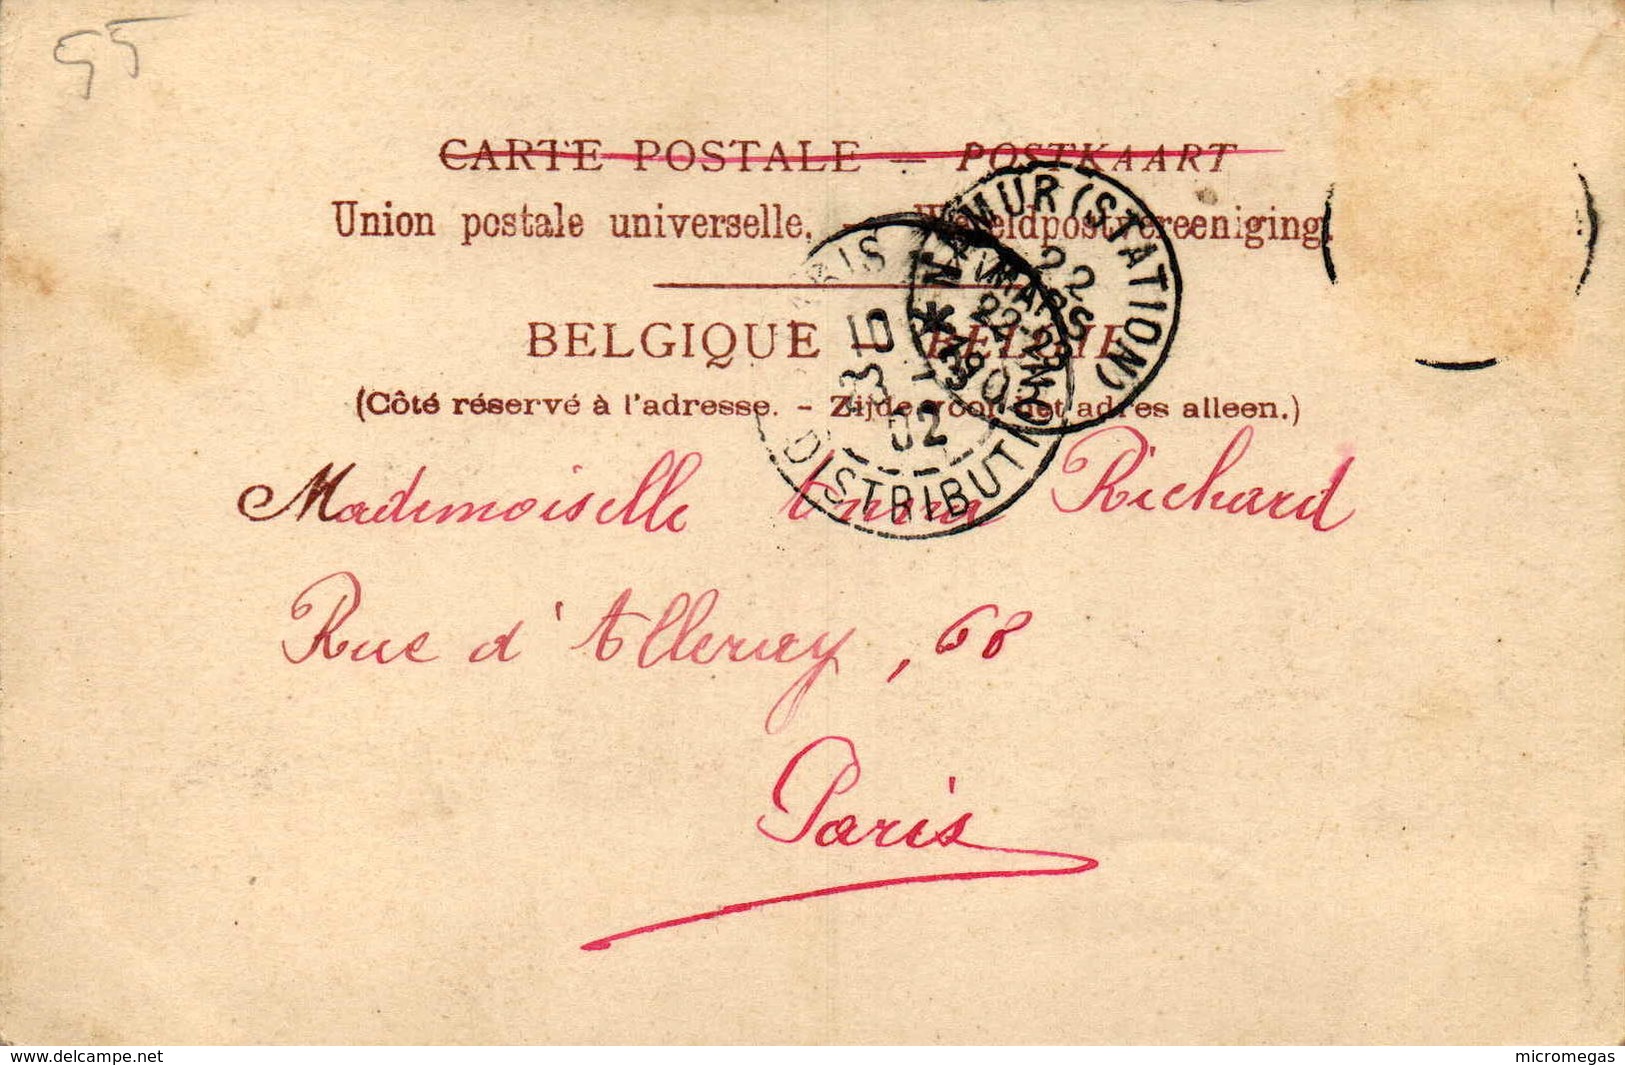 55
CARTE POSTALE — POSTKAART
Union postale universelle. — Wereldpostvereeniging.
BELGIQUE — BELGIE
(Côté réservé à l'adresse. - Zijde voor het adres alleen.)
NAMUR (STATION)
22
MARS
22-23
DISTRIBUTION
02
Mademoiselle Emma Richard
Rue d'Alleray, 68
Paris
www.delcampe.net
micromegas